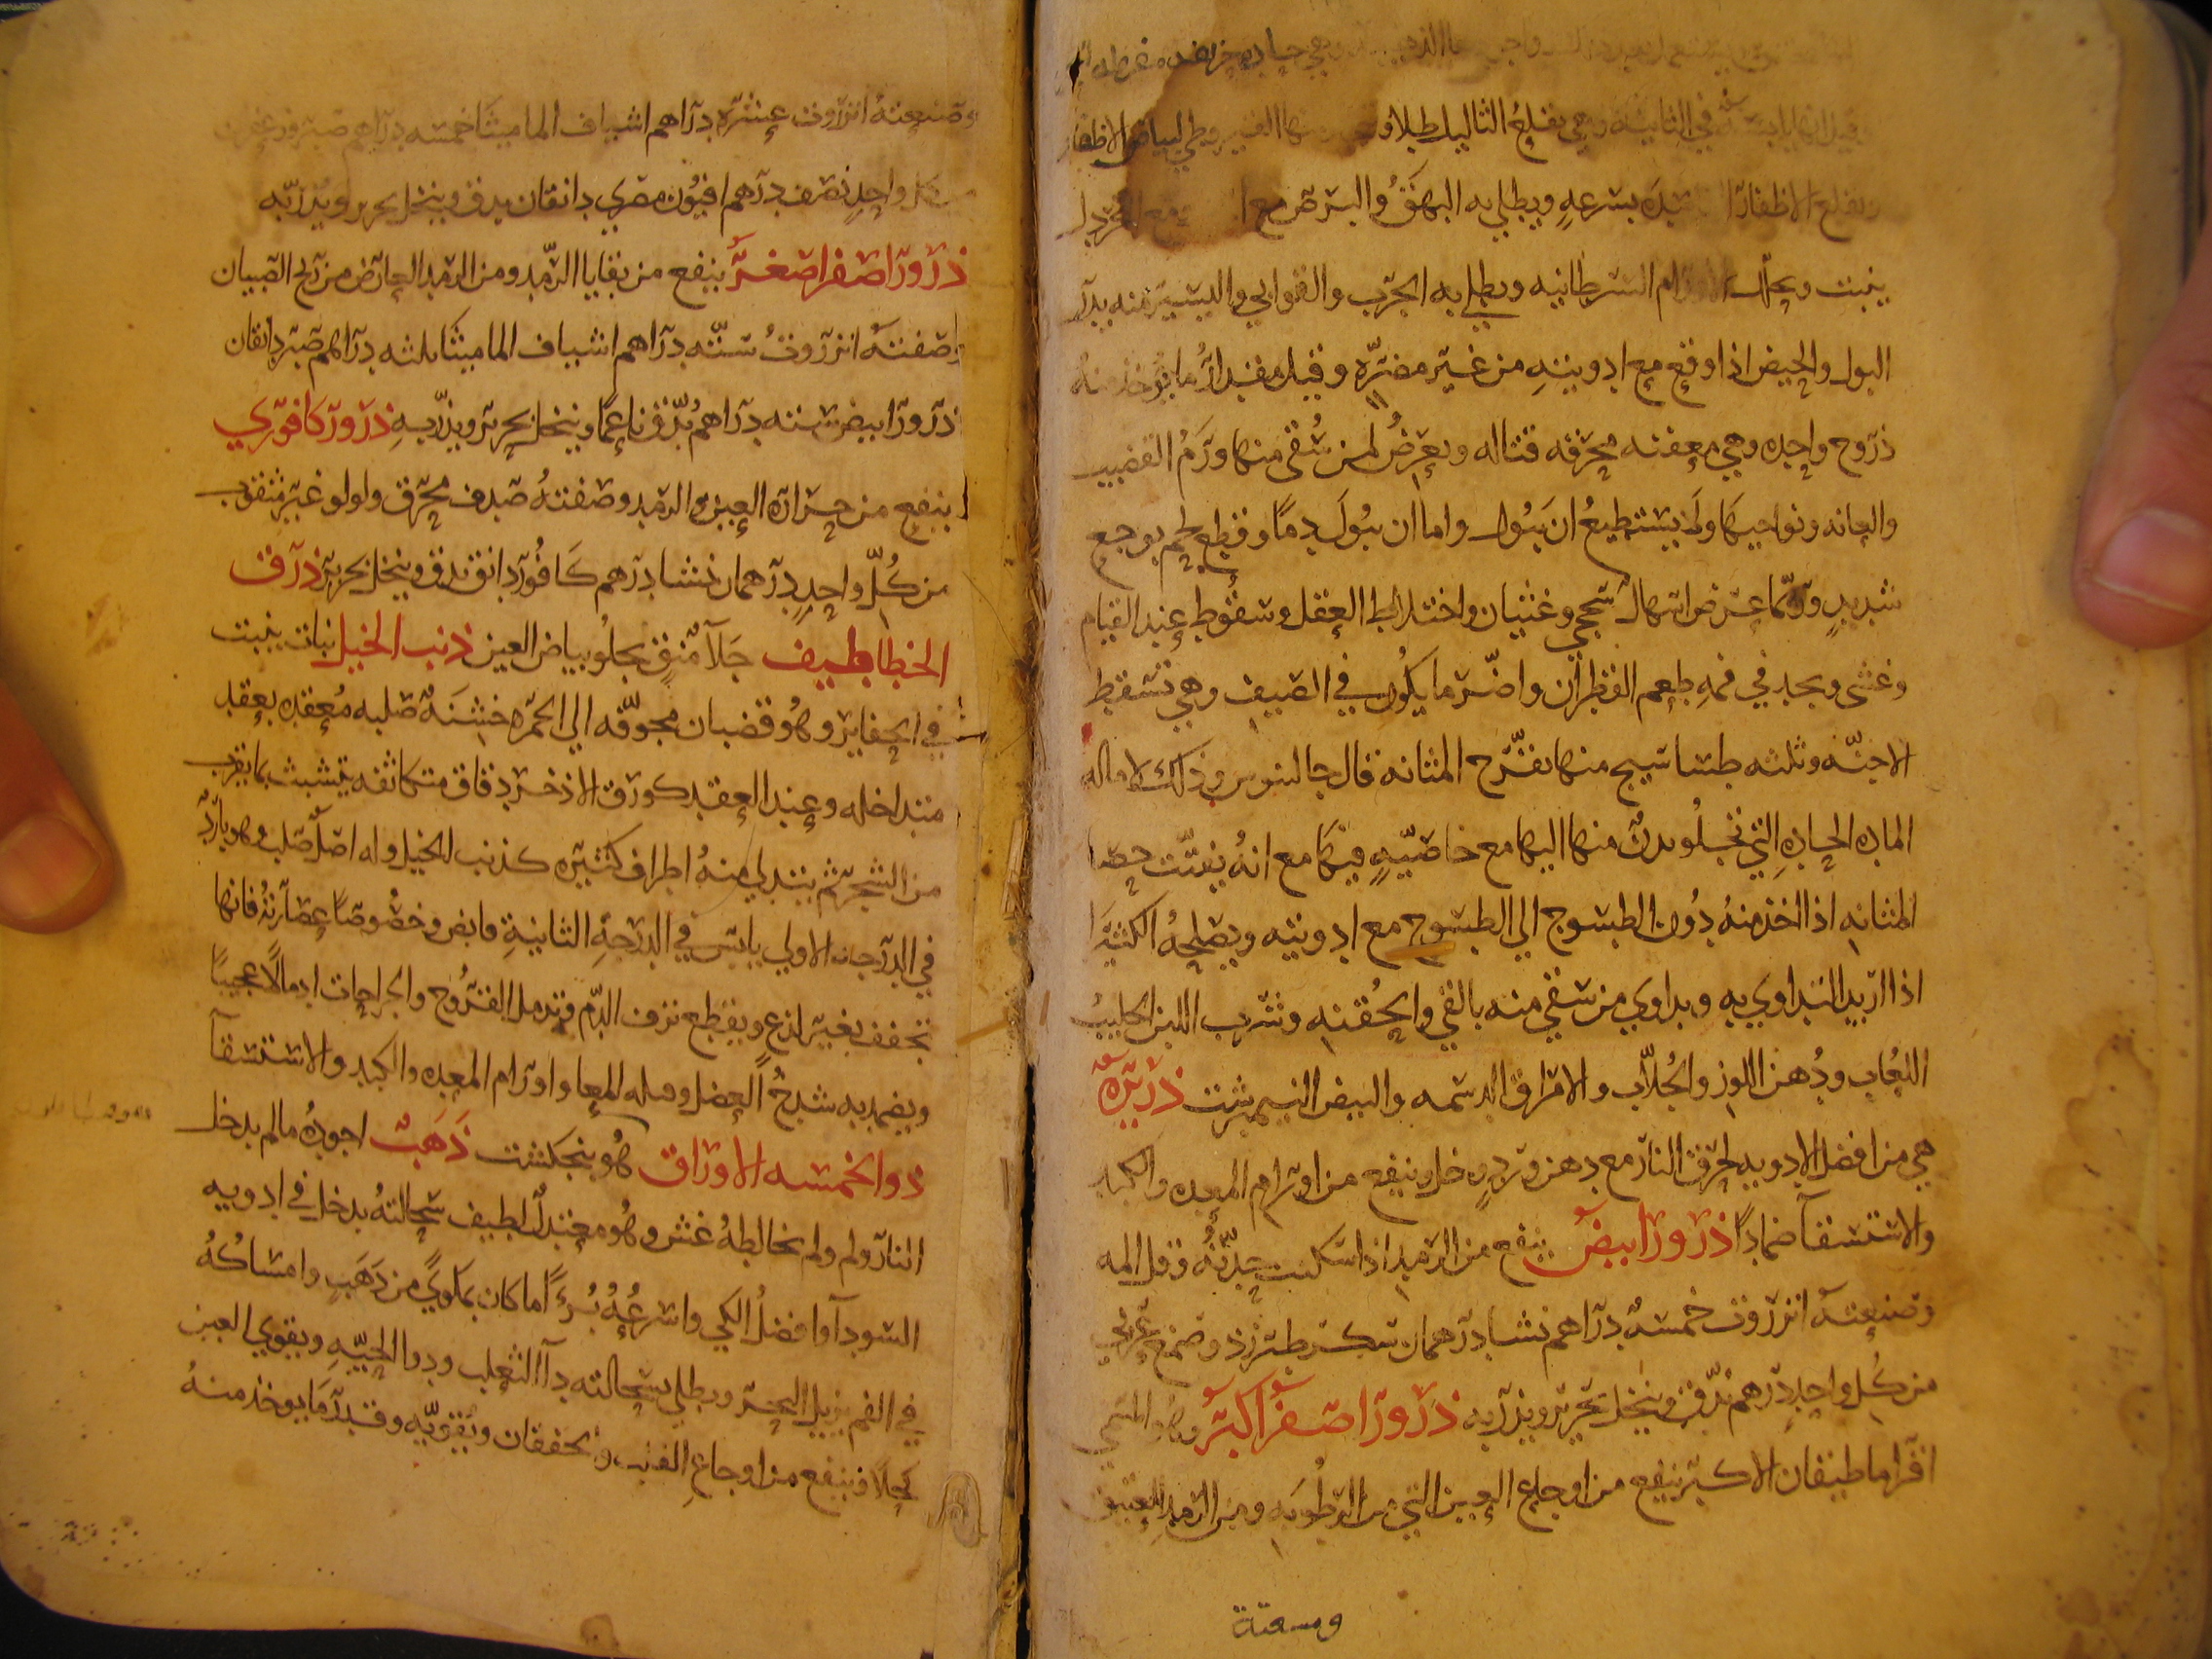 في الثانيه وهي تقلع الثاليل طلاو لبياض الاظفار
وتقلع الاظفار بسرعه ويطلي به البهق والبرص مع
ينبت ويحلل الاورام السرطانيه ويطلي به الجرب والقوابي واليسير منه يدر
البول والحيض اذا وقع مع ادويته من غير مضره وقيل مقدار ما يوخذ منه
ذروح واحده وهي معفنه محرقه قتاله ويعرض لمن سقي منها ورم القضيب
والعانه ونواحيها ولا يستطيع ان يبول واما ان يبول دما وقطع لحم بوجع
شديد وربما عرض اسهال سحجي وغثيان واختلاط العقل وسقوط عند القيام
وغشي ويجد في فمه طعم القطران واضر ما يكون في الصيف وهي تسقط
الاجنه وثلثه طساسيج منها تقرح المثانه قال جالينوس وذلك لاماله
الماده الحاده التي تخلو بدن منها اليها مع خاصيه فيها مع انه يفتت حصا
المثانه اذا اخذ منه دون الطسوج الي الطسوج مع ادويته ويصلحه الكثيرا
اذا اريد التداوي به ويداوي من سقي منه بالقي والحقنه وشرب اللبن الحليب
اللعاب ودهن اللوز والجلاب والامراق الدسمه والبيض النيمبرشت ذريره
هي من افضل الادويه لحرق النار مع دهن ورد وخل وينفع من اورام المعده والكبد
والاستسقا ضمادا ذرور ابيض ينفع من الرمد اذا سكنت حدته وقل المه
وصنعته انزروت خمسه دراهم نشا درهمان سكر طبرزذ وصمغ عربي
من كل واحد درهم يدق وينخل بحرير ويذر به ذرور اصفر اكبر وهو المسمي
اقراماطيقان الاكبر ينفع من اوجاع العين التي من الرطوبه ومن الرمد العتيق
وصنعته
وصنعته انزروت عشره دراهم اشياف الماميثا خمسه دراهم صبر وزعفران
من كل واحد نصف درهم افيون مصري دانقان يدق وينخل بحرير ويذر به
ذرور اصفر اصغر ينفع من بقايا الرمد ومن الرمد العارض من ريح الصبيان
وصفته انزروت سته دراهم اشياف الماميثا ثلثه دراهم صبر دانقان
ذرور ابيض سته دراهم يدق ناعما وينخل بحرير ويذر به ذرور كافوري
ينفع من حراره العين والرمد وصفته صدف محرق ولولو غير مثقوب
من كل واحد درهمان نشا درهم كافور دانق يدق وينخل بحرير ذرق
الخطاطيف جلا منق يجلو بياض العين ذنب الخيل نبات ينبت
في الحفاير وهو قضبان مجوفه الي الحمره خشنه صلبه معقده بعقد
متداخله وعند العقد كورق الاذخر دقاق متكاثفه يتشبث بما يقرب
من الشجر ثم يتدلي منه اطراف كثيره كذنب الخيل وله اصل صلب وهو بارد
في الدرجه الاولي يابس في الدرجه الثانيه قابض وخصوصا عصارته فانها
تجفف بغير لذع ويقطع نزف الدم وتدمل القروح والجراحات ادمالا عجيبا
ويضمد به شدخ العضل وقيله المعا واورام المعده والكبد والاستسقا
ذو الخمسه الاوراق هو بنجنكشت ذهب اجوده ما لم يدخل
النار ولم ولم يخالطه غش وهو معتدل لطيف سحالته يدخل في ادويه
السودا وافضل الكي واسرعه بردا ما كان بمكوي من ذهب وامساكه
في الفم يزيل البخر ويطلي بسحالته دا الثعلب ودا الحيه ويقوي العين
كحلا وينفع من اوجاع القلب والخفقان ويقويه وقدر ما يوخذ منه